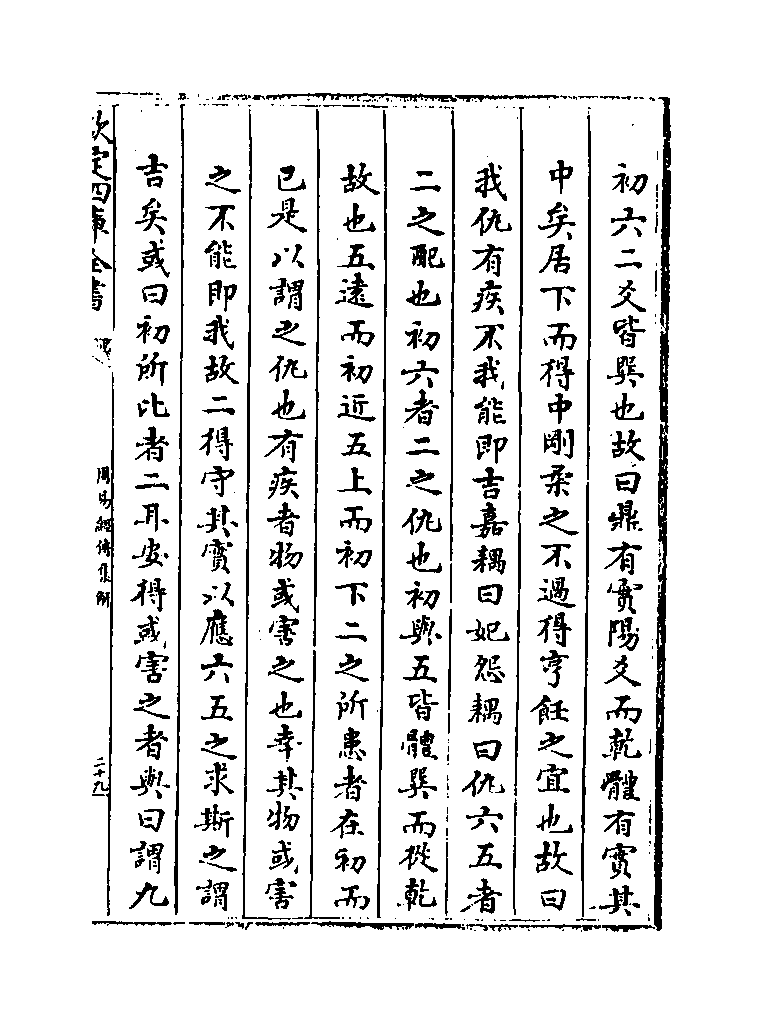 初六二爻皆巽也故曰鼎有實陽爻而乾體有實其
中矣居下而得中剛柔之不過得亨飪之宜也故曰
我仇有疾不我能即吉嘉耦曰妃怨耦曰仇六五者
二之配也初六者二之仇也初與五皆體巽而從乾
故也五逺而初近五上而初下二之所患者在初而
已是以謂之仇也有疾者物或害之也幸其物或害
之不能即我故二得守其實以應六五之求斯之謂
吉矣或曰初所比者二耳安得或害之者與曰謂九
欽定四庫全書
周易經傳集解
二十九